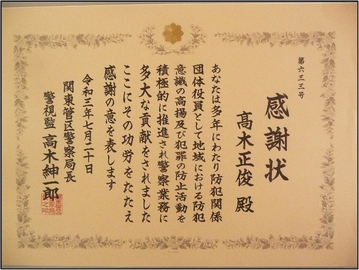 第六三三号
感謝状
髙木正俊 殿
あなたは多年にわたり防犯関係
団体役員として地域における防犯
意識の高揚及び犯罪の防止活動を
積極的に推進され警察業務に
多大な貢献をされました
ここにその功労をたたえ
感謝の意を表します
令和三年七月二十日
関東管区警察局長
警視監 高木紳一郎